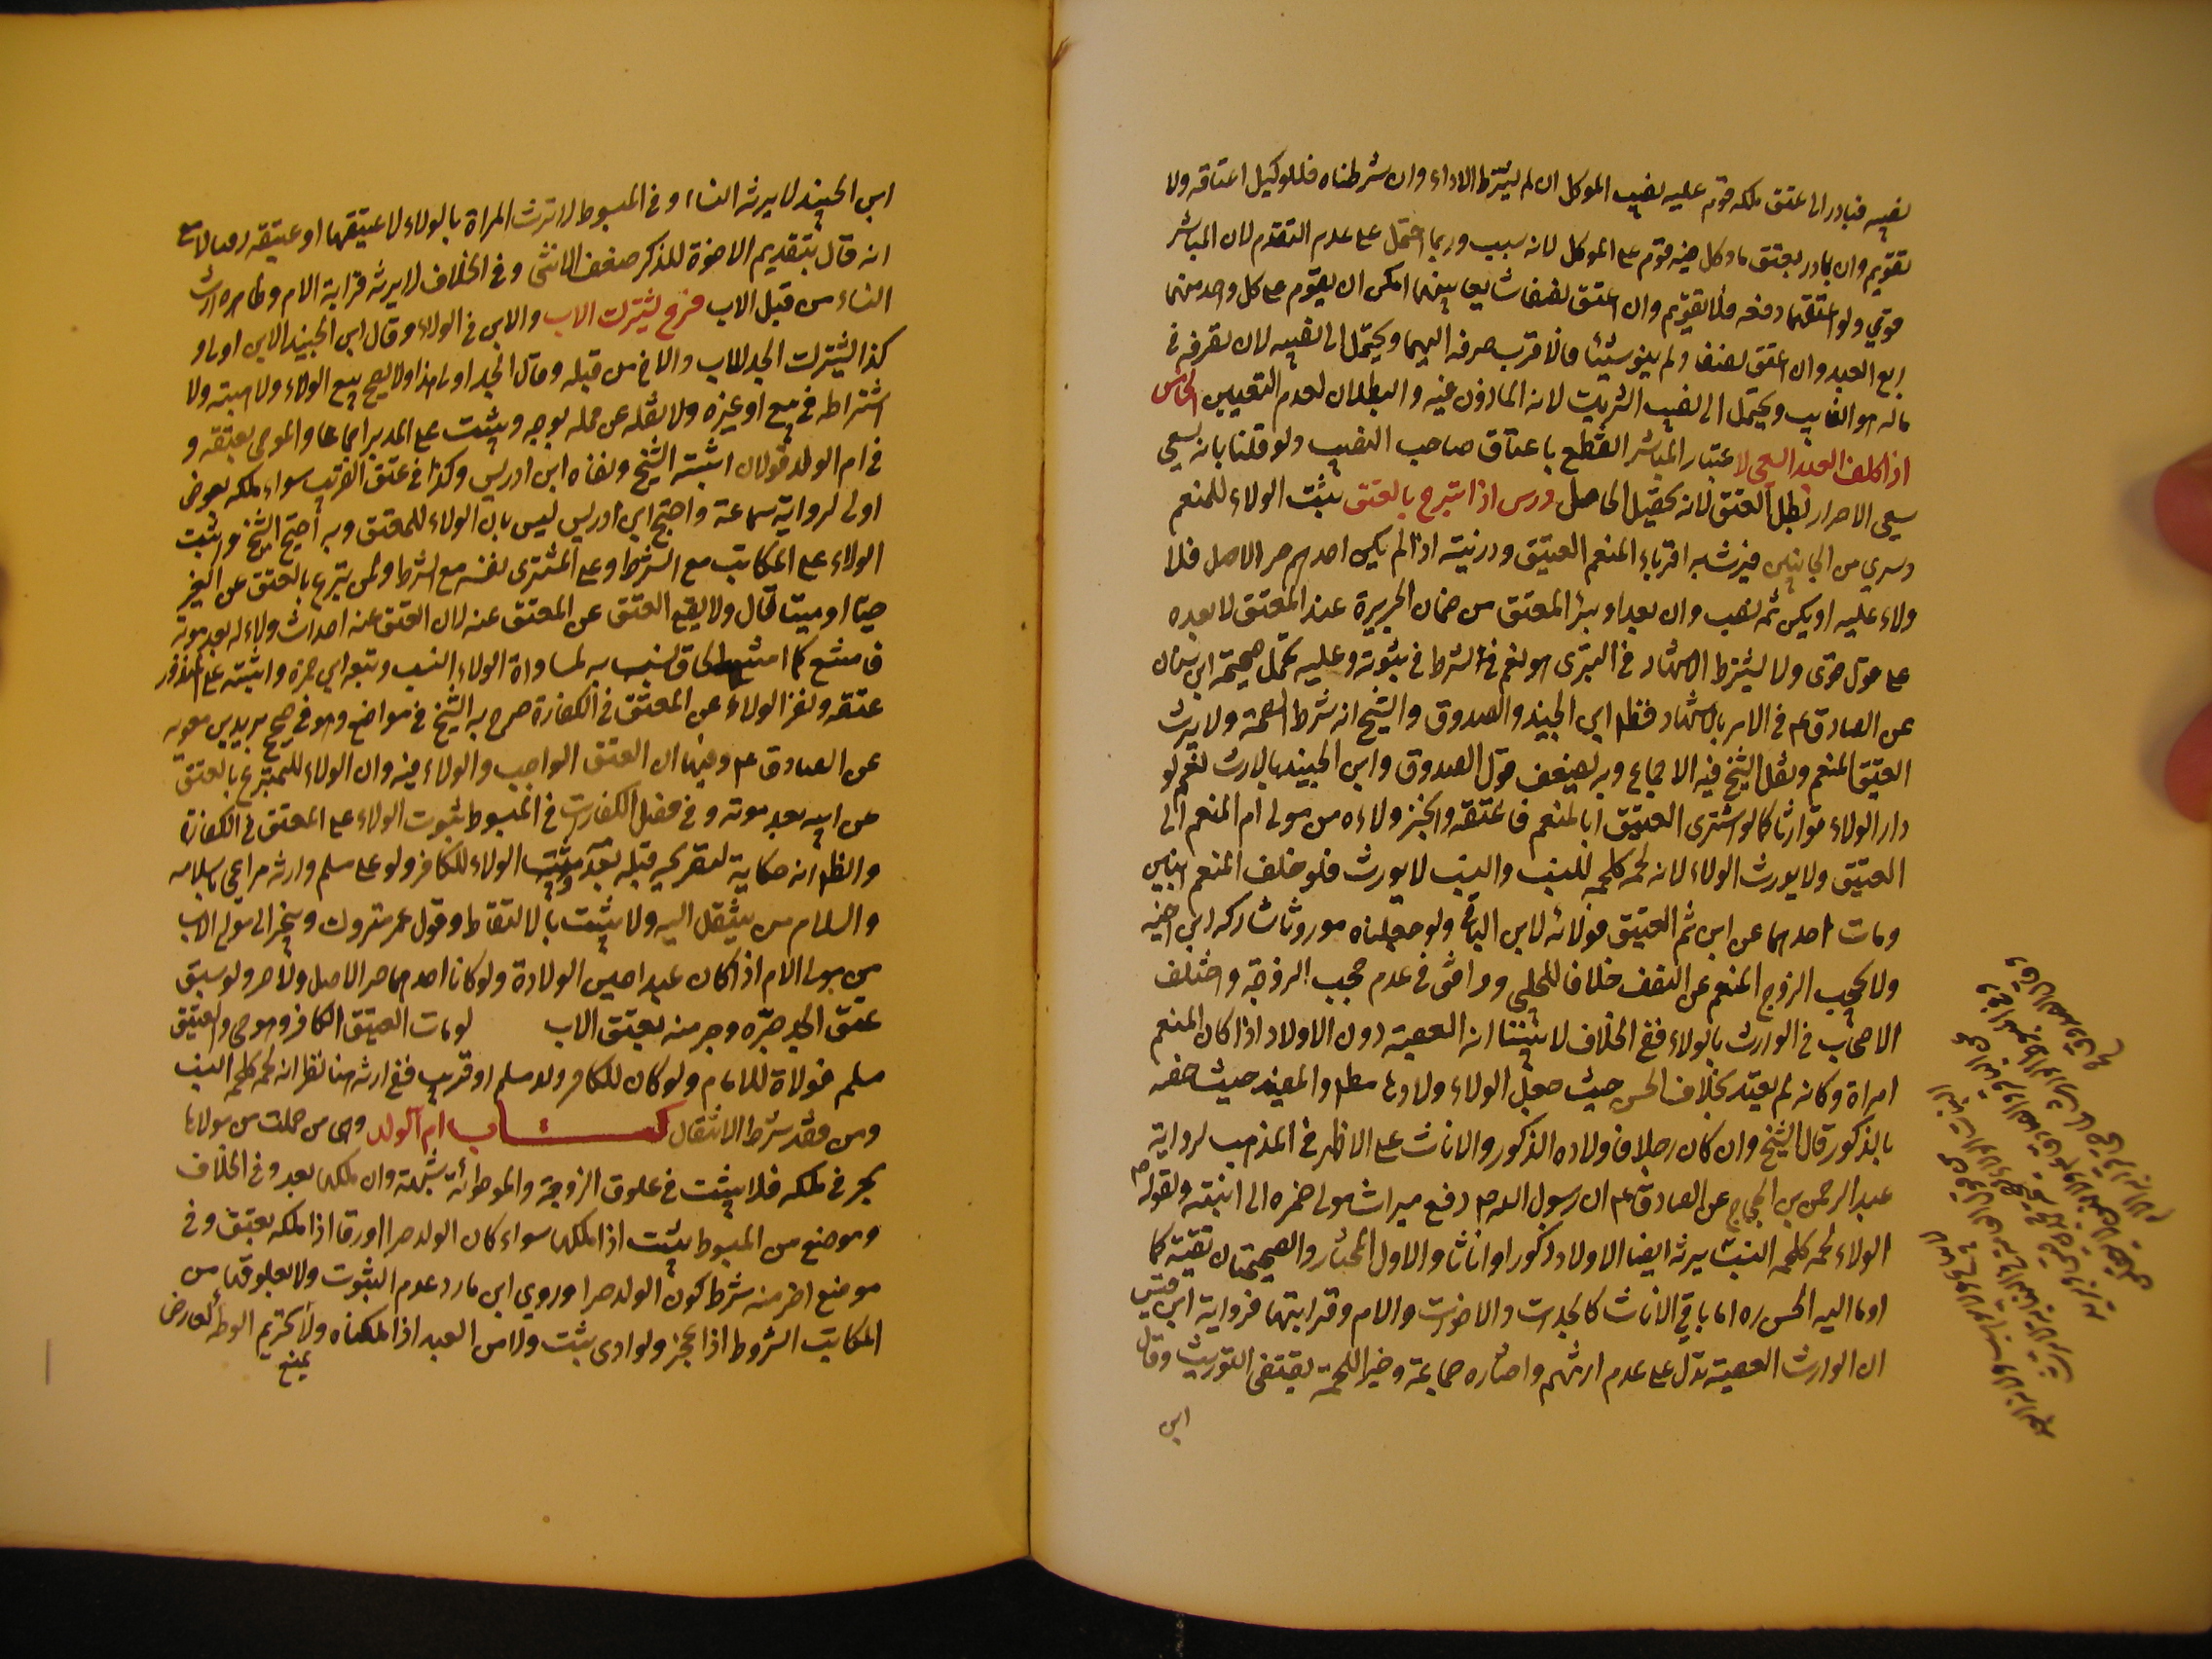 نصيبه فبادر الى عتق ملكه قوم عليه نصيب الموكل ان لم يشترط الاداء وان شرطناه فللوكيل اعتاقه ولا
تقويم وان بادر بعتق ما وكل فيه قوم على الموكل لانه سبب وربما احتمل على عدم التقدم لان المباشر
قوي ولو اعتقهما دفعه فلا تقويم وان اعتق نصفا شايعا بينهما امكن ان يقوم على كل واحد منهما
ربع العبد وان اعتق نصفا ولم ينو شيئا فالاقرب صرفه اليهما ويحتمل الى نصيبه لان تصرفه في
ماله هو الغالب ويحتمل الى نصيب الشريك لانه الماذون فيه والبطلان لعدم التعيين الخامس
اذا كلف العبد السعي لا عتبار المباشر القطع باعتاق صاحب النصيب ولو قلنا بانه يسعى
سعي الاحرار بطل العتق لانه تحصيل الحاصل درس اذا تبرع بالعتق يثبت الولاء للمنعم
وسري من الجانبين فيرث به اقرباء المنعم العتيق وذريته اذا لم يكن احدهم حر الاصل فلا
ولاء عليه او يكن ثم نسب وان بعد او يبرأ المعتق من ضمان الجريرة عند المعتق لا بعده
على قول قوى ولا يشترط الاشهاد في التبرى هو نعم في الشرط في ثبوته وعليه تحمل صحيحة ابن سنان
عن الصادق عم في الامر بالاشهاد فظاهر ابن الجنيد والصدوق والشيخ انه شرط الصحة ولا يرث
العتيق المنعم ونقل الشيخ فيه الاجماع وبه يضعف قول الصدوق وابن الجنيد بالارث نعم لو
دار الولاء توارثا كما لو اشترى العتيق ابا المنعم فاعتقه وانجز ولاءه من مولى ام المنعم الى
العتيق ولا يورث الولاء لانه لحمة كلحمة النسب والنسب لا يورث فلو خلف المنعم ابنين
ومات احدهما عن ابن ثم العتيق فولائه لابن الباقي ولو جعلناه موروثا شاركه ابن اخيه
ولا يحجب الزوج المنعم عن النصف خلافا للحلبي ووافق في عدم حجب الزوجة واختلف
الاصحاب في الوارث بالولاء ففي الخلاف لا يثبتنا انه العصبة دون الاولاد اذا كان المنعم
امراة وكانه لم يعتد بخلاف الحسن حيث جعل الولاء ولادها مطلقا والمفيد حيث خصه
بالذكور قال الشيخ وان كان رجلا فاولاده الذكور والاناث على الاظهر في المذهب لرواية
عبد الرحمن بن الحجاج عن الصادق عم ان رسول الله ص دفع ميراث مولى حمزه الى ابنته ولقوله ص
الولاء لحمة كلحمة النسب يرثه ايضا الاولاد ذكورا واناثا والاول المختار والصحيحتان تقية كما
اوما اليه الحسن ره اما باقي الاناث كالجدات والاخوات والام وقرابتها فرواية ابن قيس
ان الوارث العصبة تدل على عدم ارثهم واختاره جماعة وخبر اللحمة يقتضى التوريث وقال
ابن
ابن الجنيد لا يرثه النساء وفي المبسوط لا ترث المراة بالولاء لا عتيقها او عتيقه
انه قال بتقديم الاخوة للذكر ضعف الانثى وفي الخلاف لا يرثه قرابة الام وظاهره ارث
النساء من قبل الاب فرع يشترك الاب والابن في الولاء وقال ابن الجنيد الابن اولى و
كذا يشترك الجد للاب والاخ من قبله وقال الجد اولى هذا ولا يصح بيع الولاء ولا هبته ولا
اشتراطه في بيع او غيره ولا نقله عن محله بوجه ويثبت على المدبر اجماعا والموصى بعتقه و
في ام الولد قولان اثبته الشيخ ونفاه ابن ادريس وكذا في عتق القريب سواء ملكه بعوض
اولى لرواية سماعة واحتج ابن ادريس ليس بان الولاء للمعتق وبه احتج الشيخ واثبت
الولاء على المكاتب مع الشرط وعلى المشترى نفسه مع الشرط ولمن يتبرع بالعتق عن الغير
حيا او ميتا قال ولا يقع العتق عن المعتق عنه لان العتق عنه احداث ولاء له بعد موته
فامتنع كما امتنع الحاق نسب به لمساواة الولاء النسب وتبعه ابن حمزه واثبته على المنذور
عتقه ونفى الولاء عن المعتق في الكفارة صرح به الشيخ في مواضع وهو في صحيح بريد بن معويه
عن الصادق عم وفيها ان العتق الواجب والولاء فيه وان الولاء للمتبرع بالعتق
عن ابيه بعد موته وفي فصل الكفارت في المبسوط ثبوت الولاء على المعتق في الكفارة
والظاهر انه حكاية لتصريحه قبله بعده ويثبت الولاء للكافر ولو على مسلم وارثه مراعى باسلامه
والسلام من ينتقل اليه ولا يثبت بالالتقاط وقول عمر متروك وينجر الى مولى الاب
من مولى الام اذا كان عبدا حين الولادة ولو كانا احدهما حر الاصل ولا حر ولو سبق
عتق الجد جره وجر منه بعتق الاب لو مات العتيق الكافر وهو حى والعتيق
مسلم فولاة للامام ولو كان للكافر ولد مسلم او قريب ففي ارثه هنا نظر انه لحمة كلحمة النسب
ومن فقد شرط الانتقال كتاب ام الولد وهى من حملت من مولاها
بحر في ملكه فلا يثبت في علوق الزوجة والموطوأة بشبهة وان ملكها بعد وفي الخلاف
وموضع من المبسوط يثبت اذا ملكها سواء كان الولد حرا او رقا اذا ملكه يعتق وفي
موضع اخر منه شرط كون الولد حرا وروى ابن مارد عدم الثبوت ولا بعلوقها من
المكاتب المشروط اذا عجز ولو ادى يثبت ولا من العبد اذا ملكناه ولا تحريم الوطء لعارض
يمنع